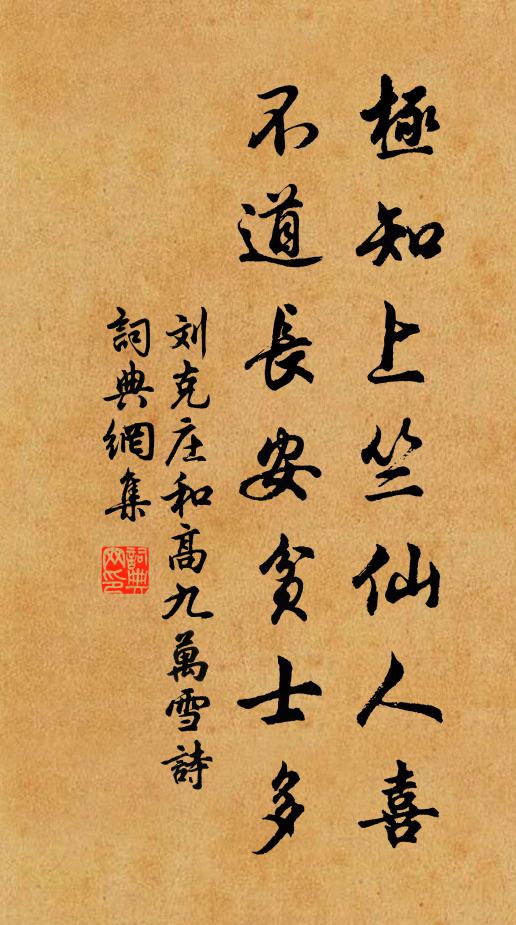 極知上竺仙人喜
不道長安貧士多
刘克庄和高九萬雪詩
詞典網集
詞典網印